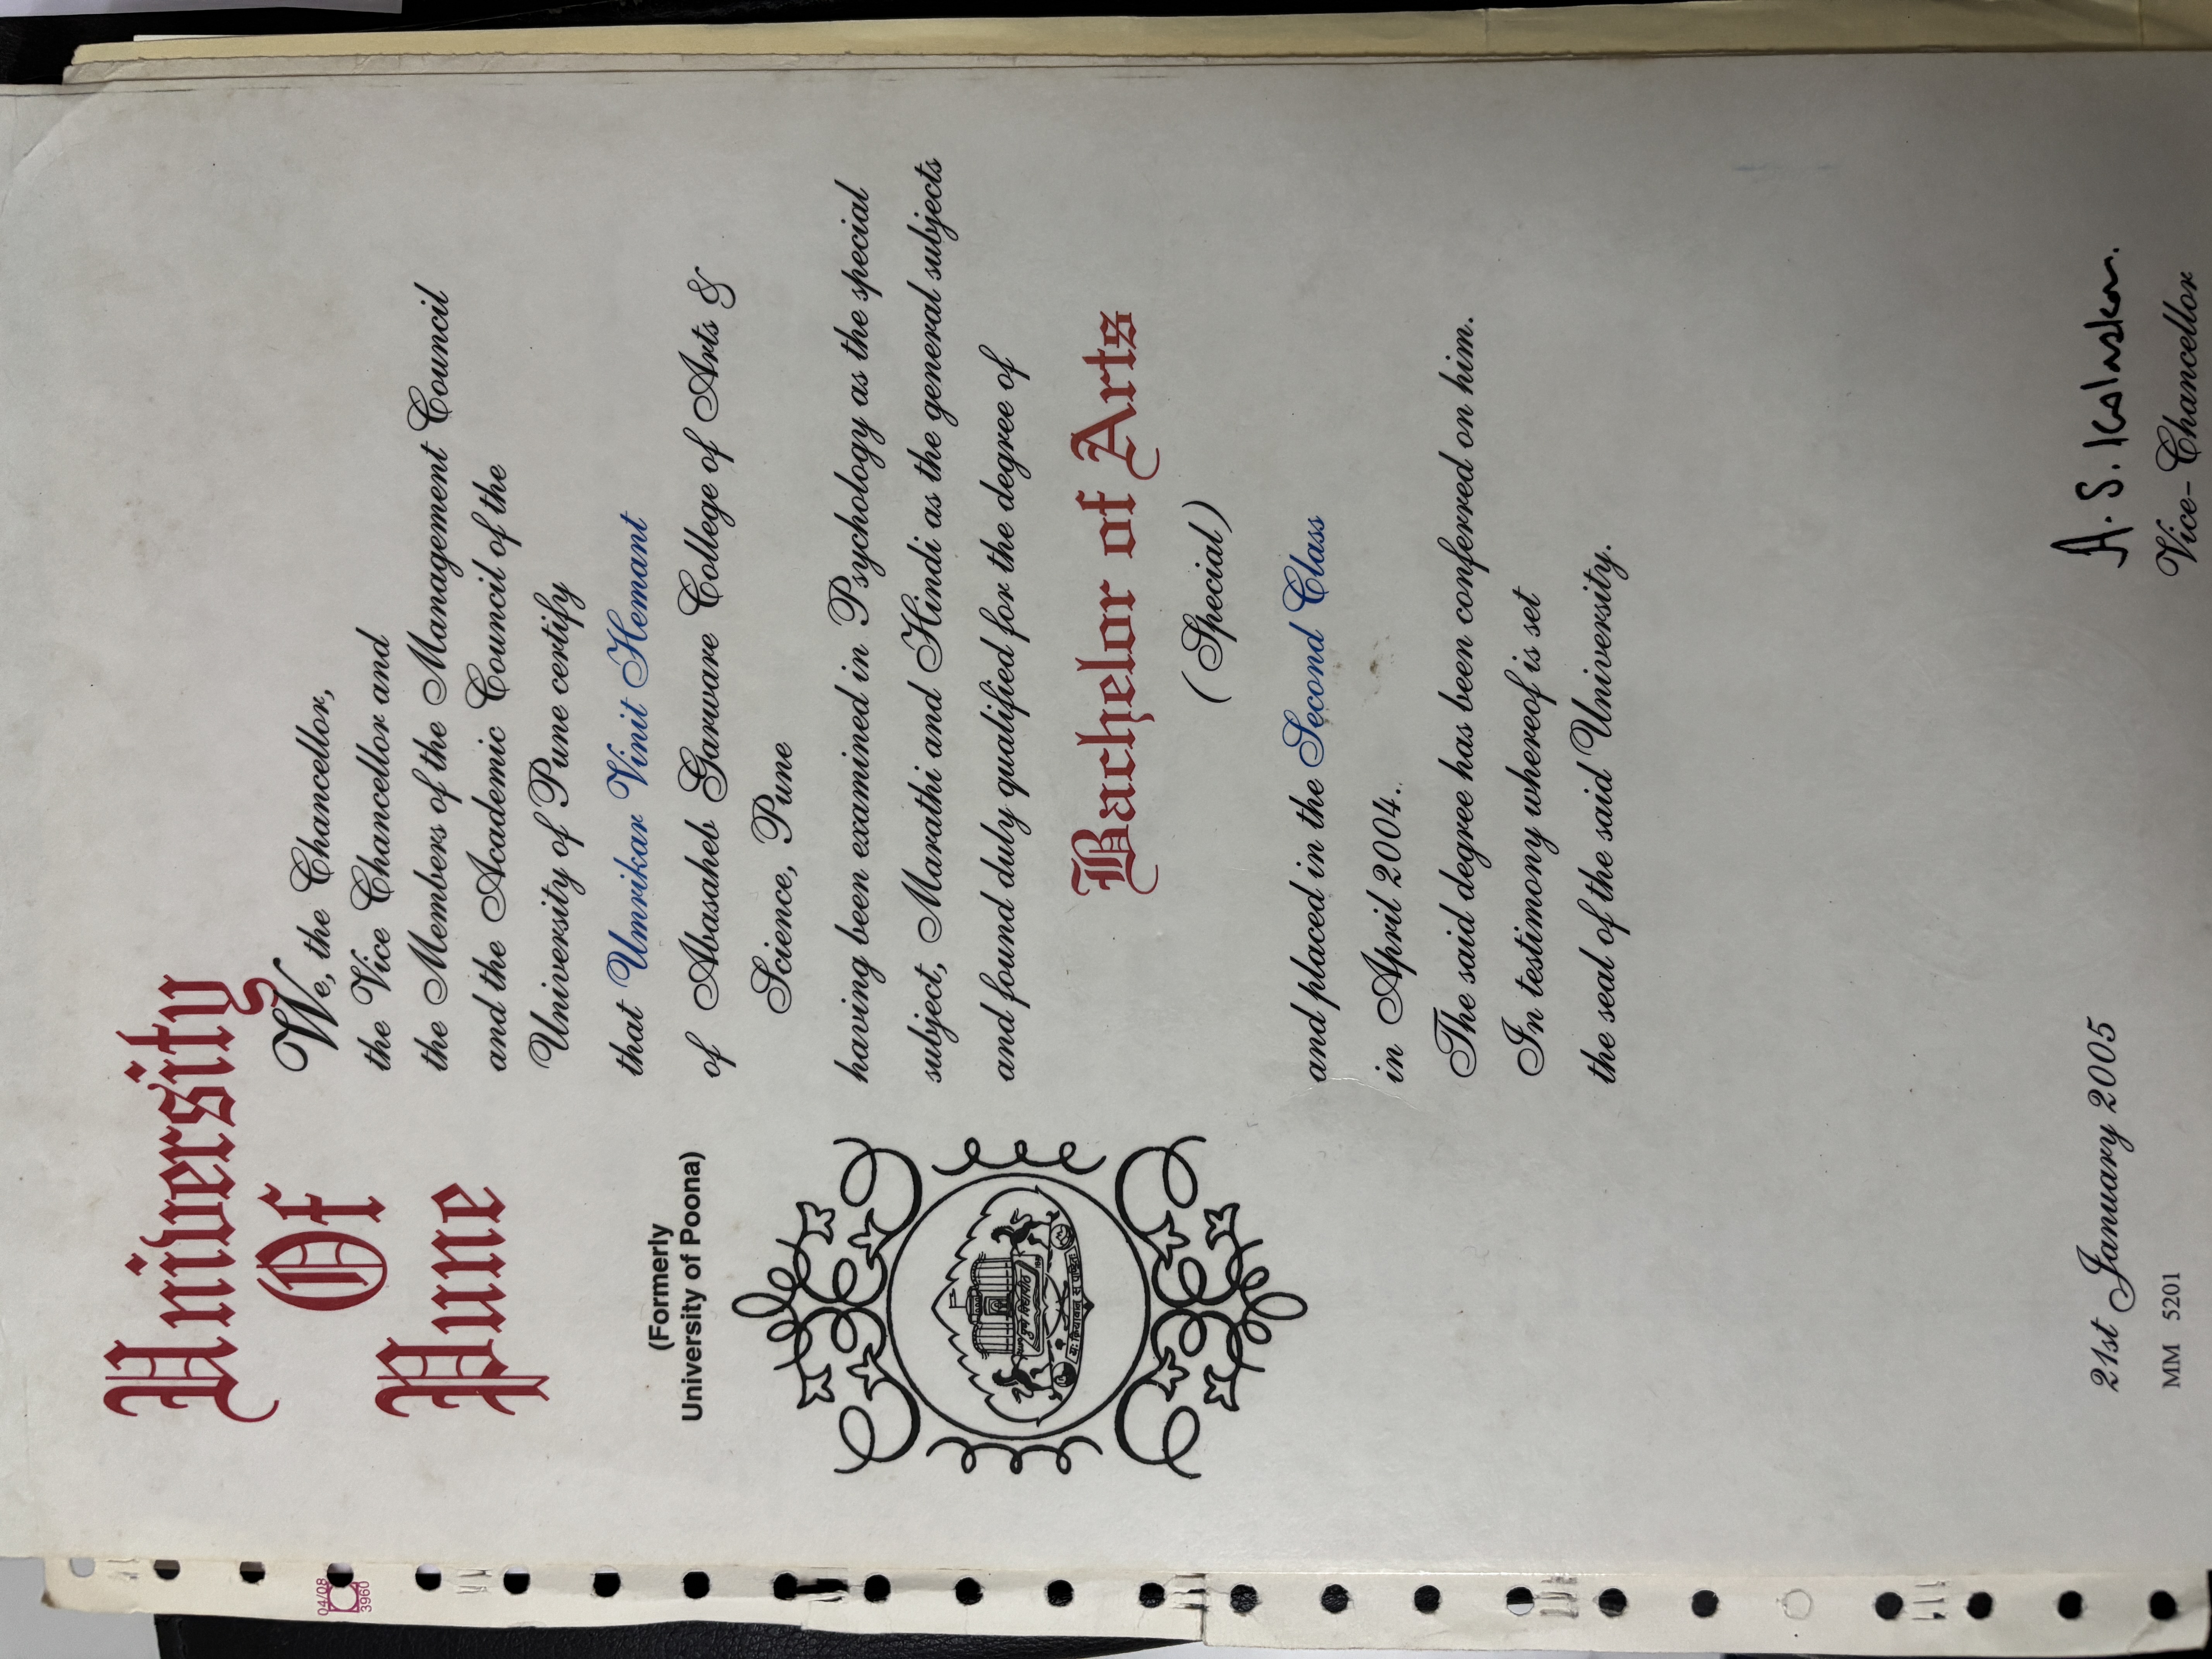 University
Of
Pune
(Formerly
University of Poona)
We, the Chancellor,
the Vice Chancellor and
the Members of the Management Council
and the Academic Council of the
University of Pune certify
that Umrikar Vinit Hemant
of Abasaheb Garware College of Arts &
Science, Pune
having been examined in Psychology as the special
subject, Marathi and Hindi as the general subjects
and found duly qualified for the degree of
Bachelor of Arts
(Special)
and placed in the Second Class
in April 2004.
The said degree has been conferred on him.
In testimony whereof is set
the seal of the said University.
21st January 2005
MM 5201
A. S. Kolaskar.
Vice-Chancellor
पुणे विद्यापीठ
यः क्रियावान् स पण्डितः
04/08
3960